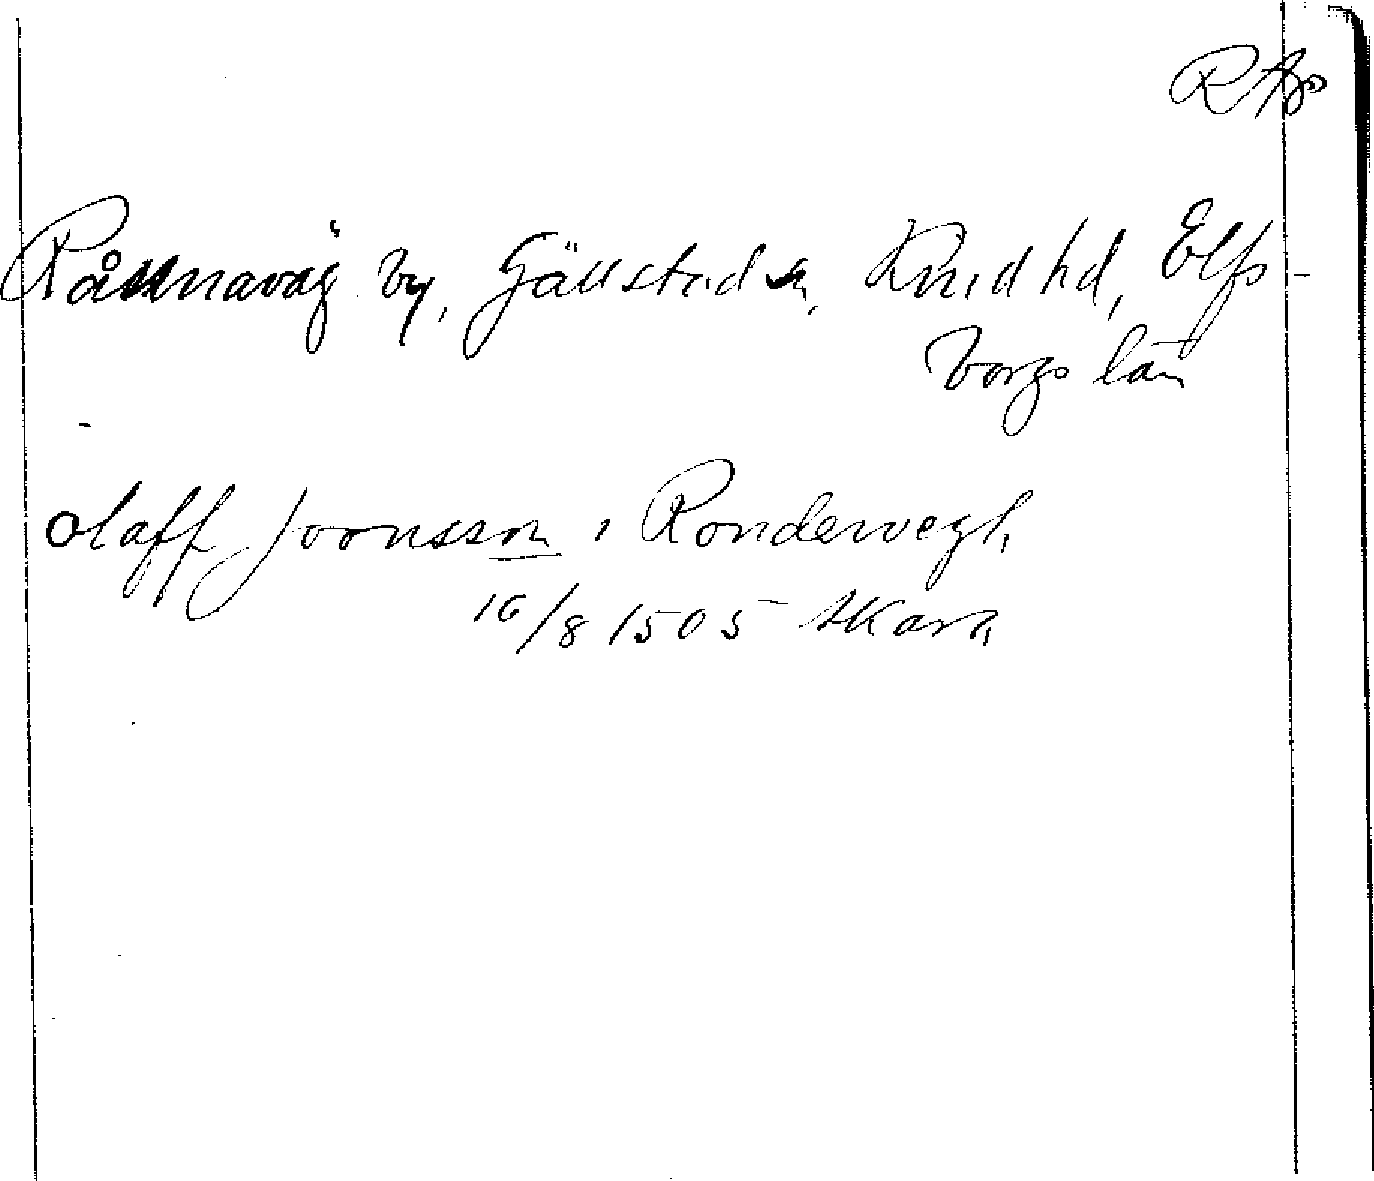 RAp
Rånnaväg by, Gällstad sn, Kind hd, Elfs-
borgs län
olaff Joonsson i Rondevegh
16/8 1505 Skara